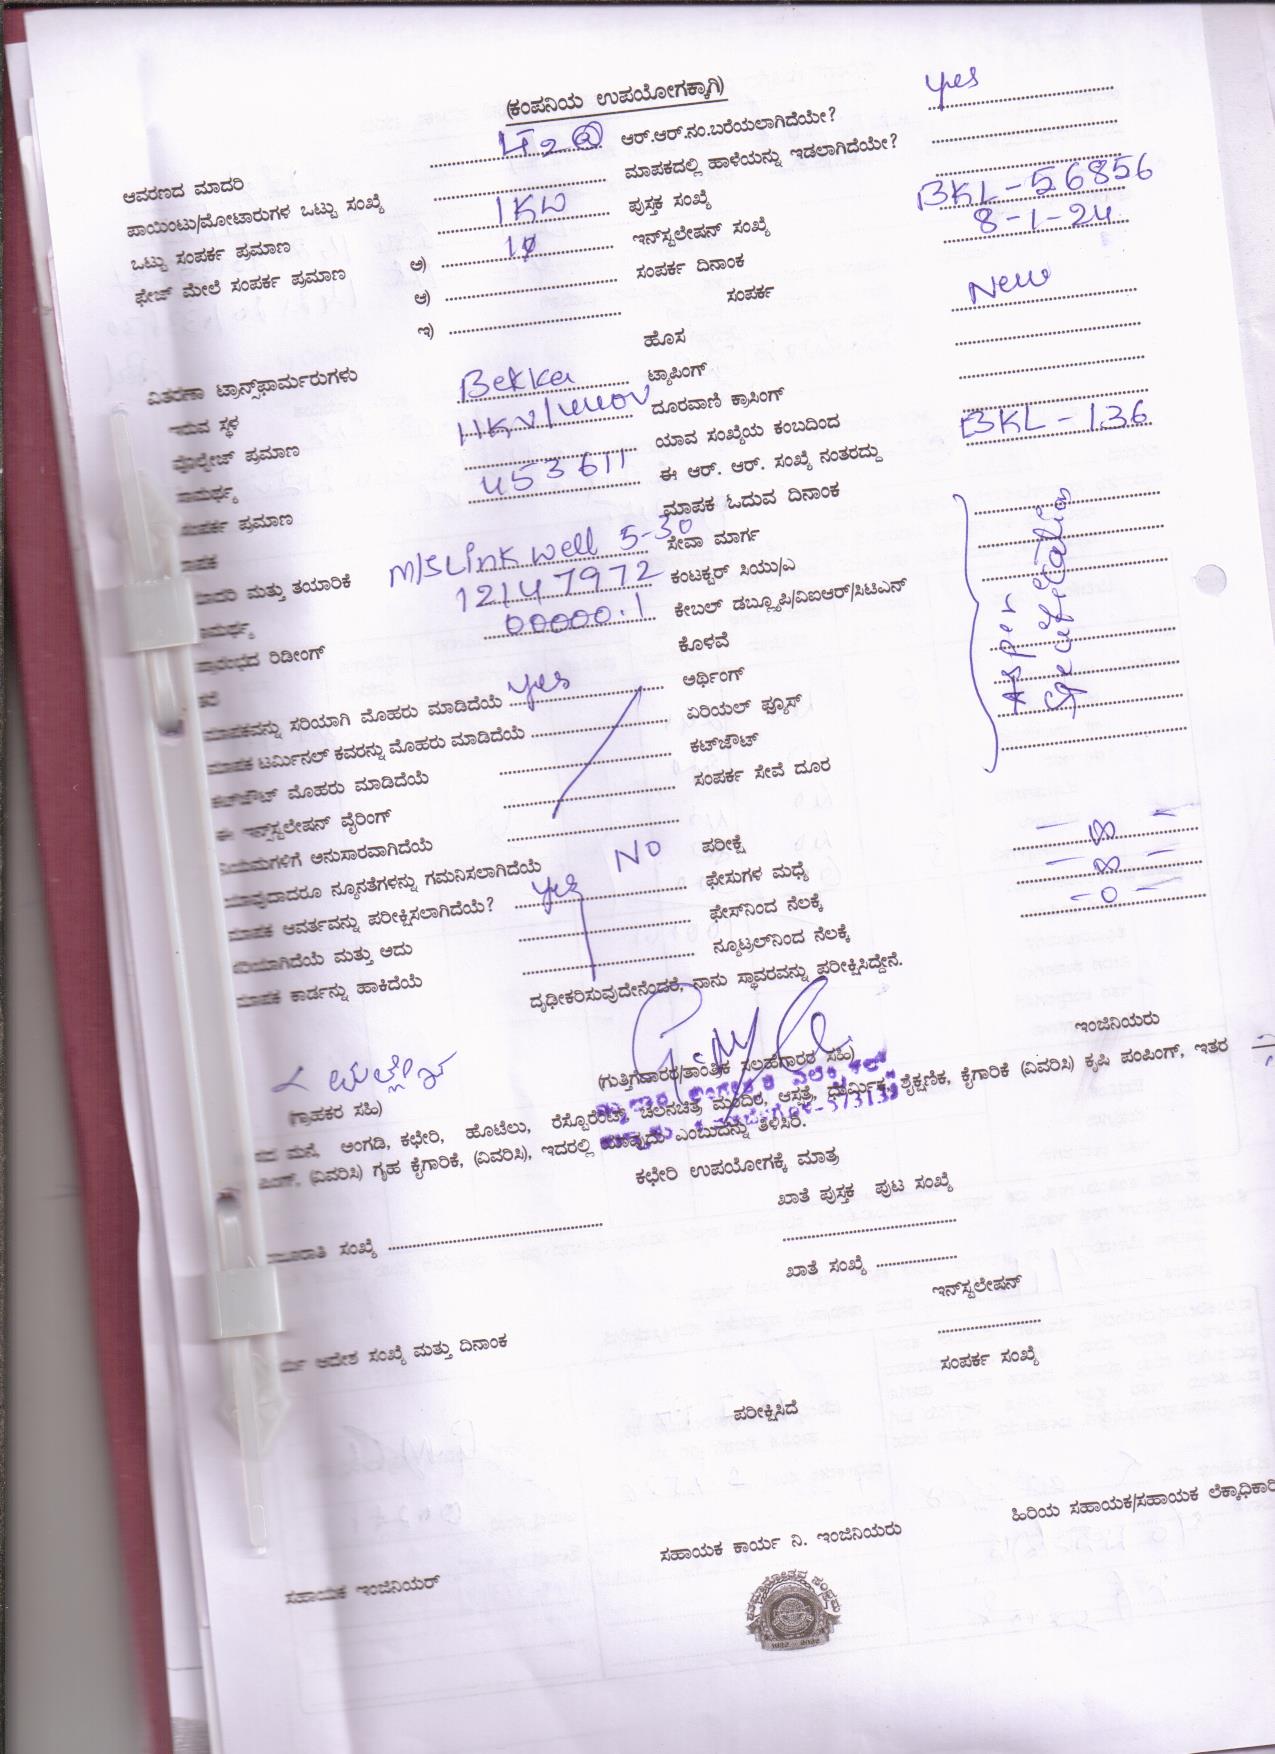 (ಕಂಪನಿಯ ಉಪಯೋಗಕ್ಕಾಗಿ)
ಆವರಣದ ಮಾದರಿ ಆರ್.ಆರ್.ನಂ.ಬರೆಯಲಾಗಿದೆಯೇ? yes
ಪಾಯಿಂಟು/ಮೋಟಾರುಗಳ ಒಟ್ಟು ಸಂಖ್ಯೆ ಮಾಪಕದಲ್ಲಿ ಹಾಳೆಯನ್ನು ಇಡಲಾಗಿದೆಯೇ?
ಒಟ್ಟು ಸಂಪರ್ಕ ಪ್ರಮಾಣ 1KW ಪುಸ್ತಕ ಸಂಖ್ಯೆ
ಫೇಜ್ ಮೇಲೆ ಸಂಪರ್ಕ ಪ್ರಮಾಣ ಅ) ಇನ್‌ಸ್ಟಲೇಷನ್ ಸಂಖ್ಯೆ BKL-56856
ಆ) ಸಂಪರ್ಕ ದಿನಾಂಕ 8-1-24
ಇ) ಸಂಪರ್ಕ
ಹೊಸ New
ವಿತರಣಾ ಟ್ರಾನ್ಸ್‌ಫಾರ್ಮರುಗಳು
ಇರುವ ಸ್ಥಳ Bekka ಟ್ಯಾಪಿಂಗ್
ವೋಲ್ಟೇಜ್ ಪ್ರಮಾಣ ದೂರವಾಣಿ ಕ್ರಾಸಿಂಗ್
ಸಾಮರ್ಥ್ಯ ಯಾವ ಸಂಖ್ಯೆಯ ಕಂಬದಿಂದ
ಸಂಪರ್ಕ ಪ್ರಮಾಣ 453611 ಈ ಆರ್. ಆರ್. ಸಂಖ್ಯೆ ನಂತರದ್ದು BKL-136
ಮಾಪಕ ಓದುವ ದಿನಾಂಕ
ಮತ್ತು ತಯಾರಿಕೆ M/S Linkwell 5-30 ಸೇವಾ ಮಾರ್ಗ
12147972 ಕಂಟಕ್ಟರ್ ಸಿಯು/ಎ
ಪ್ರಾರಂಭದ ರಿಡೀಂಗ್ 00000.1 ಕೇಬಲ್ ಡಬ್ಲ್ಯೂಪಿ/ವಿಐಆರ್/ಸಿಟಿಎನ್
As per
ಕೊಳವೆ
ಮಾಪಕವನ್ನು ಸರಿಯಾಗಿ ಮೊಹರು ಮಾಡಿದೆಯೆ yes ಅರ್ಥಿಂಗ್
ಮಾಪಕ ಟರ್ಮಿನಲ್ ಕವರನ್ನು ಮೊಹರು ಮಾಡಿದೆಯೆ ಏರಿಯಲ್ ಫ್ಯೂಸ್
ಕಟ್‌ಔಟ್ ಮೊಹರು ಮಾಡಿದೆಯೆ ಕಟ್‌ಔಟ್
ಈ ಇನ್‌ಸ್ಟಲೇಷನ್ ವೈರಿಂಗ್ ಸಂಪರ್ಕ ಸೇವೆ ದೂರ
ನಿಯಮಗಳಿಗೆ ಅನುಸಾರವಾಗಿದೆಯೆ
ಯಾವುದಾದರೂ ನ್ಯೂನತೆಗಳನ್ನು ಗಮನಿಸಲಾಗಿದೆಯೆ NO ಪರೀಕ್ಷೆ
ಮಾಪಕ ಆವರ್ತವನ್ನು ಪರೀಕ್ಷಿಸಲಾಗಿದೆಯೆ? yes ಫೇಸುಗಳ ಮಧ್ಯೆ - ∞ -
ಸರಿಯಾಗಿದೆಯೆ ಮತ್ತು ಅದು ಫೇಸ್‌ನಿಂದ ನೆಲಕ್ಕೆ - ∞ -
ಮಾಪಕ ಕಾರ್ಡನ್ನು ಹಾಕಿದೆಯೆ ನ್ಯೂಟ್ರಲ್‌ನಿಂದ ನೆಲಕ್ಕೆ - 0 -
ದೃಢೀಕರಿಸುವುದೇನೆಂದರೆ, ನಾನು ಸ್ಥಾವರವನ್ನು ಪರೀಕ್ಷಿಸಿದ್ದೇನೆ.
ಇಂಜಿನಿಯರು
(ಗ್ರಾಹಕರ ಸಹಿ) (ಗುತ್ತಿಗೆದಾರರ/ತಾಂತ್ರಿಕ ಸಲಹೆಗಾರರ ಸಹಿ)
ಮನೆ, ಅಂಗಡಿ, ಕಛೇರಿ, ಹೊಟೆಲು, ರೆಸ್ಟೊರೆಂಟ್, ಚಲನಚಿತ್ರ ಮಂದಿರ, ಆಸ್ಪತ್ರೆ, ಧಾರ್ಮಿಕ, ಶೈಕ್ಷಣಿಕ, ಕೈಗಾರಿಕೆ (ವಿವರಿಸಿ) ಕೃಷಿ ಪಂಪಿಂಗ್, ಇತರ
(ವಿವರಿಸಿ) ಗೃಹ ಕೈಗಾರಿಕೆ, (ವಿವರಿಸಿ), ಇದರಲ್ಲಿ ಯಾವುದು ಎಂಬುದನ್ನು ತಿಳಿಸಿರಿ.
ಕಛೇರಿ ಉಪಯೋಗಕ್ಕೆ ಮಾತ್ರ
ಸಂಖ್ಯೆ ಖಾತೆ ಪುಸ್ತಕ ಪುಟ ಸಂಖ್ಯೆ
ಖಾತೆ ಸಂಖ್ಯೆ
ಇನ್‌ಸ್ಟಲೇಷನ್
ಆದೇಶ ಸಂಖ್ಯೆ ಮತ್ತು ದಿನಾಂಕ
ಸಂಪರ್ಕ ಸಂಖ್ಯೆ
ಪರೀಕ್ಷಿಸಿದೆ
ಸಹಾಯಕ ಇಂಜಿನಿಯರ್ ಸಹಾಯಕ ಕಾರ್ಯ ನಿ. ಇಂಜಿನಿಯರು ಹಿರಿಯ ಸಹಾಯಕ/ಸಹಾಯಕ ಲೆಕ್ಕಾಧಿಕಾರಿ